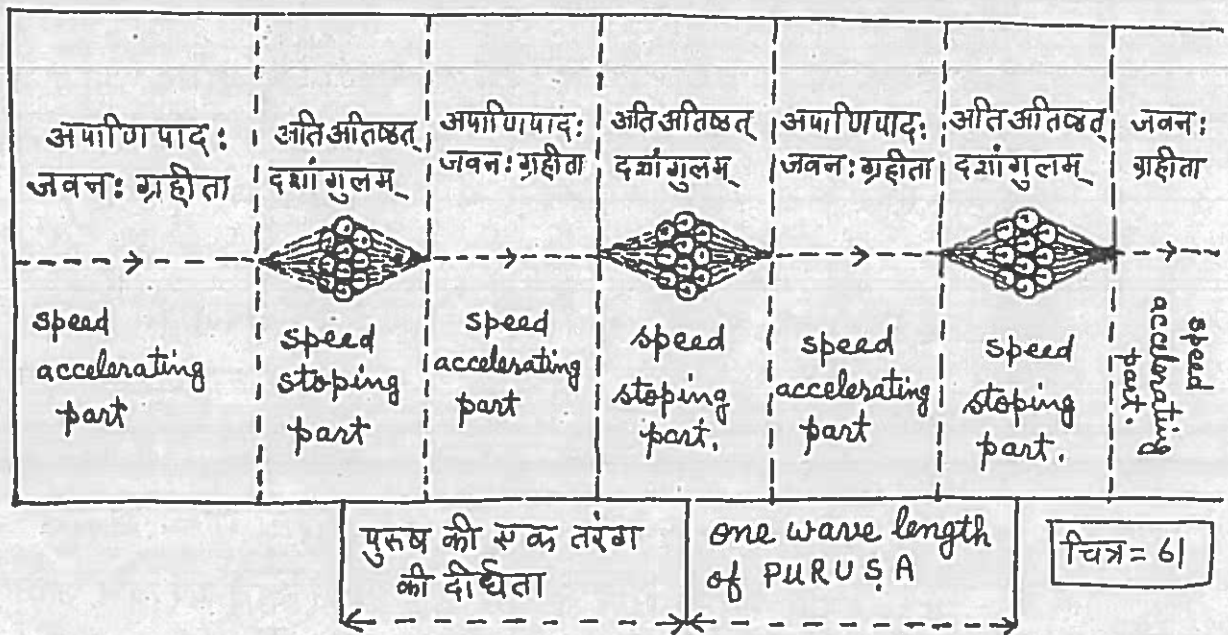 अपाणिपाद:
जवन: ग्रहीता
अति अतिष्ठत्
दशांगुलम्
अपाणिपाद:
जवन: ग्रहीता
अति अतिष्ठत्
दशांगुलम्
अपाणिपाद:
जवन: ग्रहीता
अति अतिष्ठत्
दशांगुलम्
जवन:
ग्रहीता
speed
accelerating
part
speed
stoping
part
speed
accelerating
part
speed
stoping
part.
speed
accelerating
part
speed
stoping
part.
speed
acclorating
part.
पुरुष की एक तरंग
की दीर्घता
one wave length
of PURUṢA
चित्र = 61